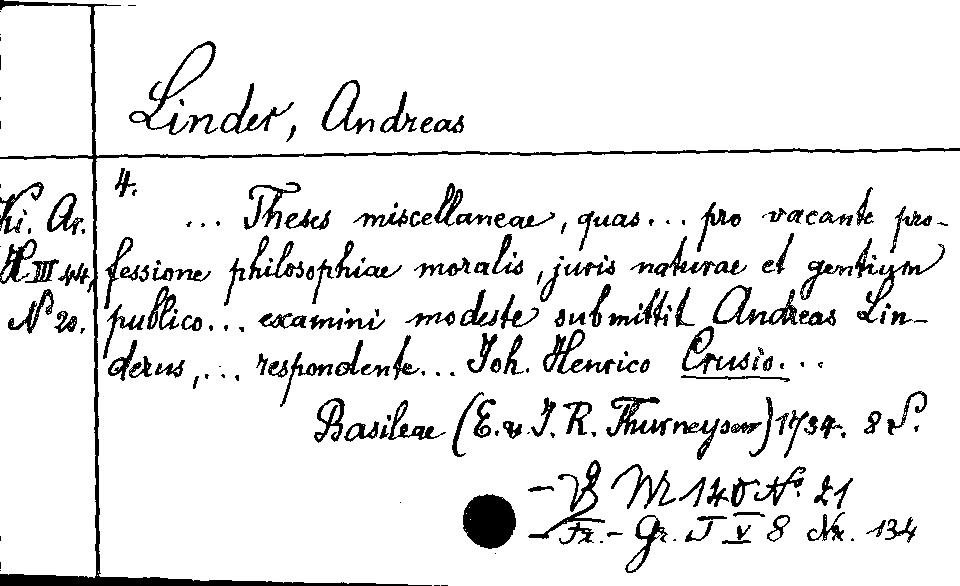 Linder, Andreas
4.
Ki. Ar.
H III 44,
N° 20.
... Theses miscellaneae, quas... pro vacante pro-
fessione philosophiae moralis, juris naturae et gentium
publico... examini modeste submittit Andreas Lin-
derus,... respondente... Joh. Henrico Crusio...
Basileae (E. u. J. R. Thurneysen) 1734. 8 S.
- VB M 140 N° 21
- Fr.- Gr. J V 8 Nr. 134